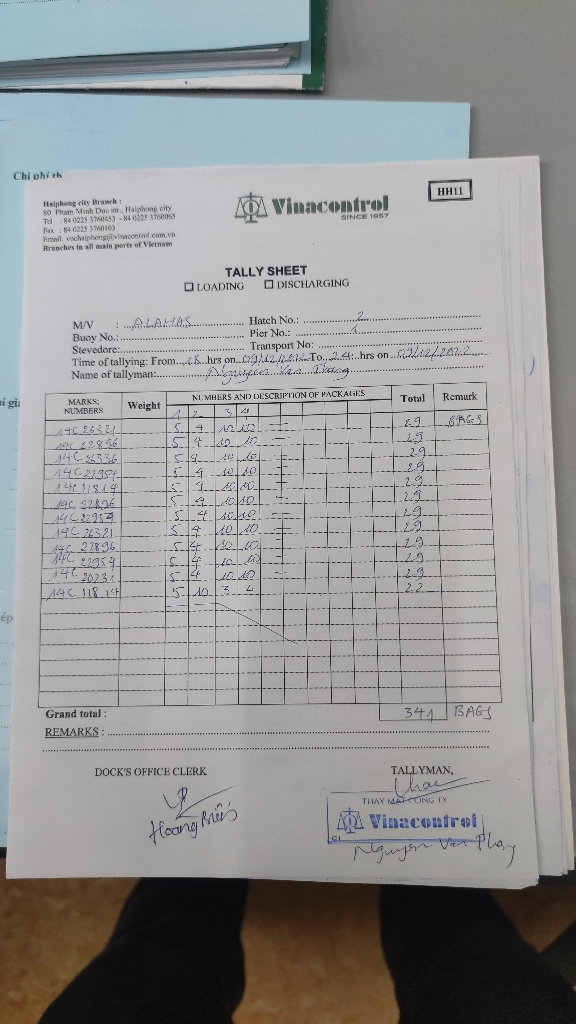 Chi phí th
HH11
Haiphong city Branch :
80 Pham Minh Duc str., Haiphong city
Tel : 84 0225 3760453 - 84 0225 3760065
Fax : 84 0225 3760103
Email: vnchaiphong@vinacontrol.com.vn
Branches in all main ports of Vietnam
Vinacontrol
SINCE 1957
TALLY SHEET
☐ LOADING ☐ DISCHARGING
M/V : Hatch No.: 2
Buoy No.: Pier No.: 1
Stevedore: Transport No:
Time of tallying: From 18 hrs on 09/12/2022 To 24 hrs on 09/12/2022
Name of tallyman: Nguyen Van
MARKS; NUMBERS Weight NUMBERS AND DESCRIPTION OF PACKAGES Total Remark
1 2 3 4
14C 26321 5 4 10 10 = 29 BAGS
14C 22896 5 4 10 10 = 29
14C 26336 5 4 10 10 = 29
14C 22954 5 4 10 10 = 29
14C 11814 5 4 10 10 = 29
14C 22896 5 4 10 10 = 29
14C 22954 5 4 10 10 = 29
14C 26321 5 4 10 10 = 29
14C 22896 5 4 10 10 = 29
14C 22954 5 4 10 10 = 29
14C 20231 5 4 10 10 = 29
14C 11814 5 10 3 4 22
Grand total : 341 BAGS
REMARKS :
DOCK'S OFFICE CLERK TALLYMAN,
THAY MẶT CÔNG TY
Vinacontrol
Hoang
Nguyen Van